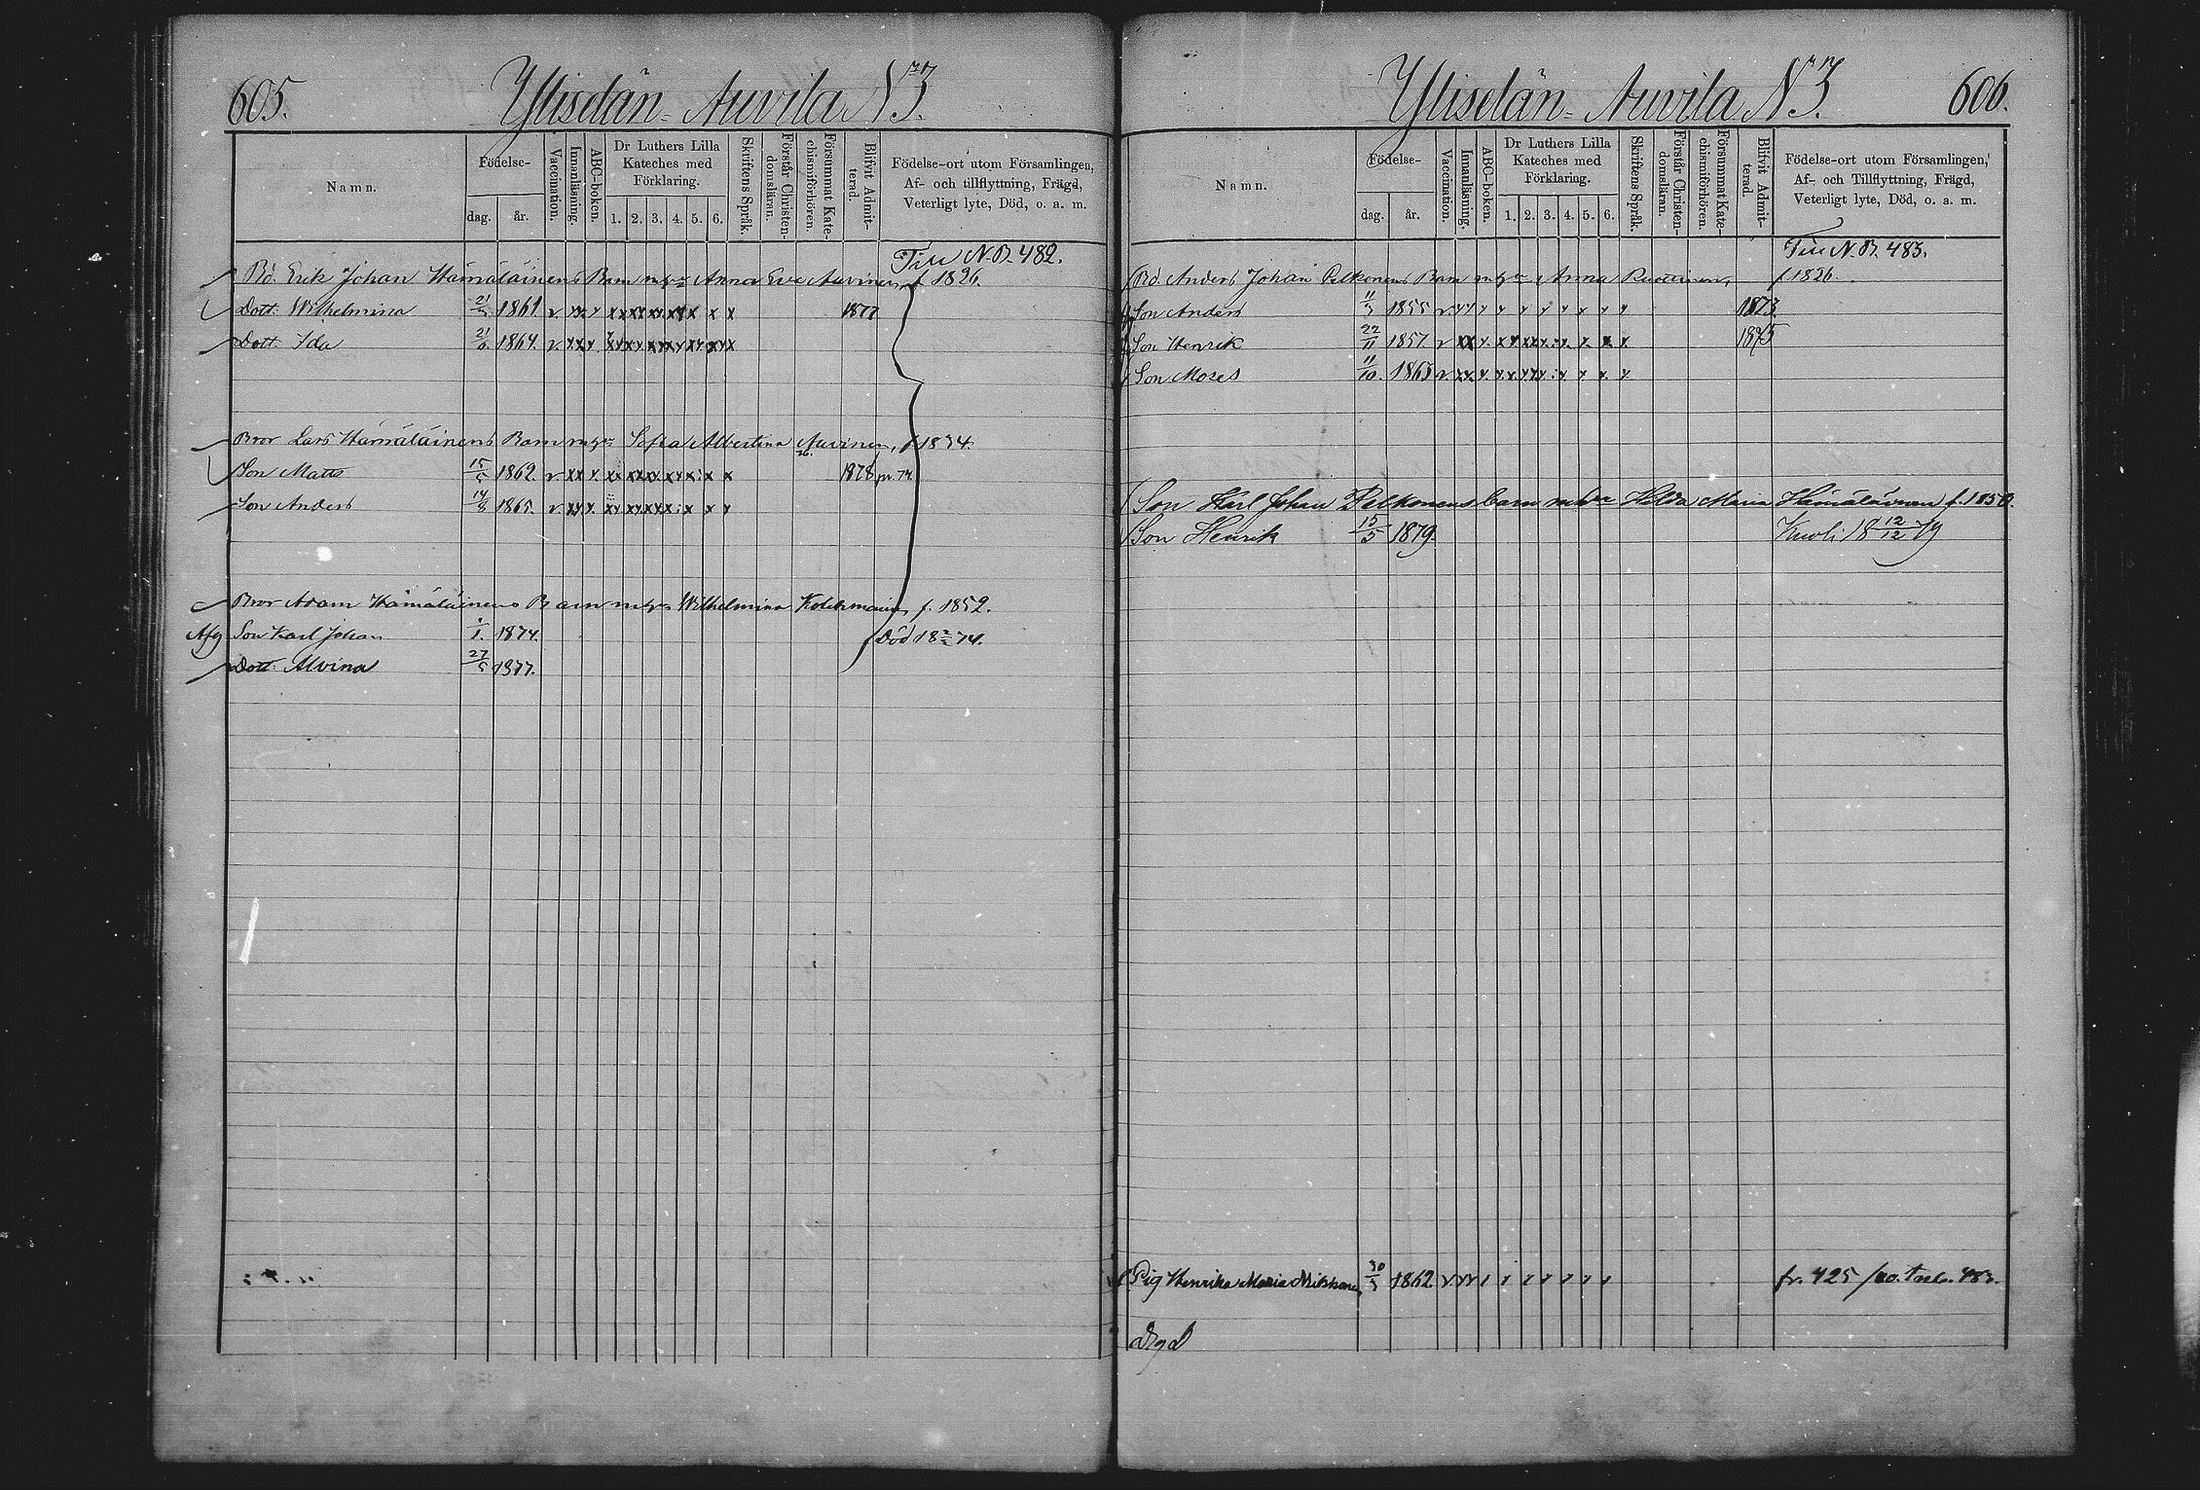 605.
Yliselän- Auvila N 3.
Namn.
Födelse-
dag.
år.
Vaccination.
Innanläsning.
ABC-boken.
Dr Luthers Lilla
Kateches med
Förklaring.
1. 2. 3. 4. 5. 6.
Skriftens Språk.
Förstår Christen-
domsläran.
Försummat Kate-
chismiförhören.
Blifvit Admit-
terad.
Födelse-ort utom Församlingen,
Af- och tillflyttning, Frägd,
Veterligt lyte, Död, o. a. m.
N.B. 482.
Bd. Erik Johan Hämäläinens Barn m. Anna Eva Auvinen, f. 1826.
Dott. Wilhelmina 1861 1877
Dott. Ida 1864.
Bror Lars Hämäläinens Barn m. Sofia Albertina Auvinen, f. 1834.
Son Matts 15/5 1862. 1878
Son Anders 14/8 1865.
Bror Adam Hämäläinens Barn m. Wilhelmina f. 1852.
Afg Son Karl Johan 1874. Död 74.
Dott. Alvina 27/5 1877.
Yliselän- Auvila N 3.
606.
Namn.
Födelse-
dag.
år.
Vaccination.
Innanläsning.
ABC-boken.
Dr Luthers Lilla
Kateches med
Förklaring.
1. 2. 3. 4. 5. 6.
Skriftens Språk.
Förstår Christen-
domsläran.
Försummat Kate-
chismiförhören.
Blifvit Admit-
terad.
Födelse-ort utom Församlingen,
Af- och Tillflyttning, Frägd,
Veterligt lyte, Död, o. a. m.
N.B. 483.
Bd. Anders Johan Pelkonens Barn m. Anna f. 1826.
Son Anders 1855 1873.
Son Henrik 22/11 1857 1875
Son Moses 11/10. 1863
Son Karl Johan Pelkonens barn m. Hilda Maria Hämäläinen f. 1850.
Son Henrik 15/5 1879. 18 12/12 79
Pig Henrika Maria 1862 fr. 425